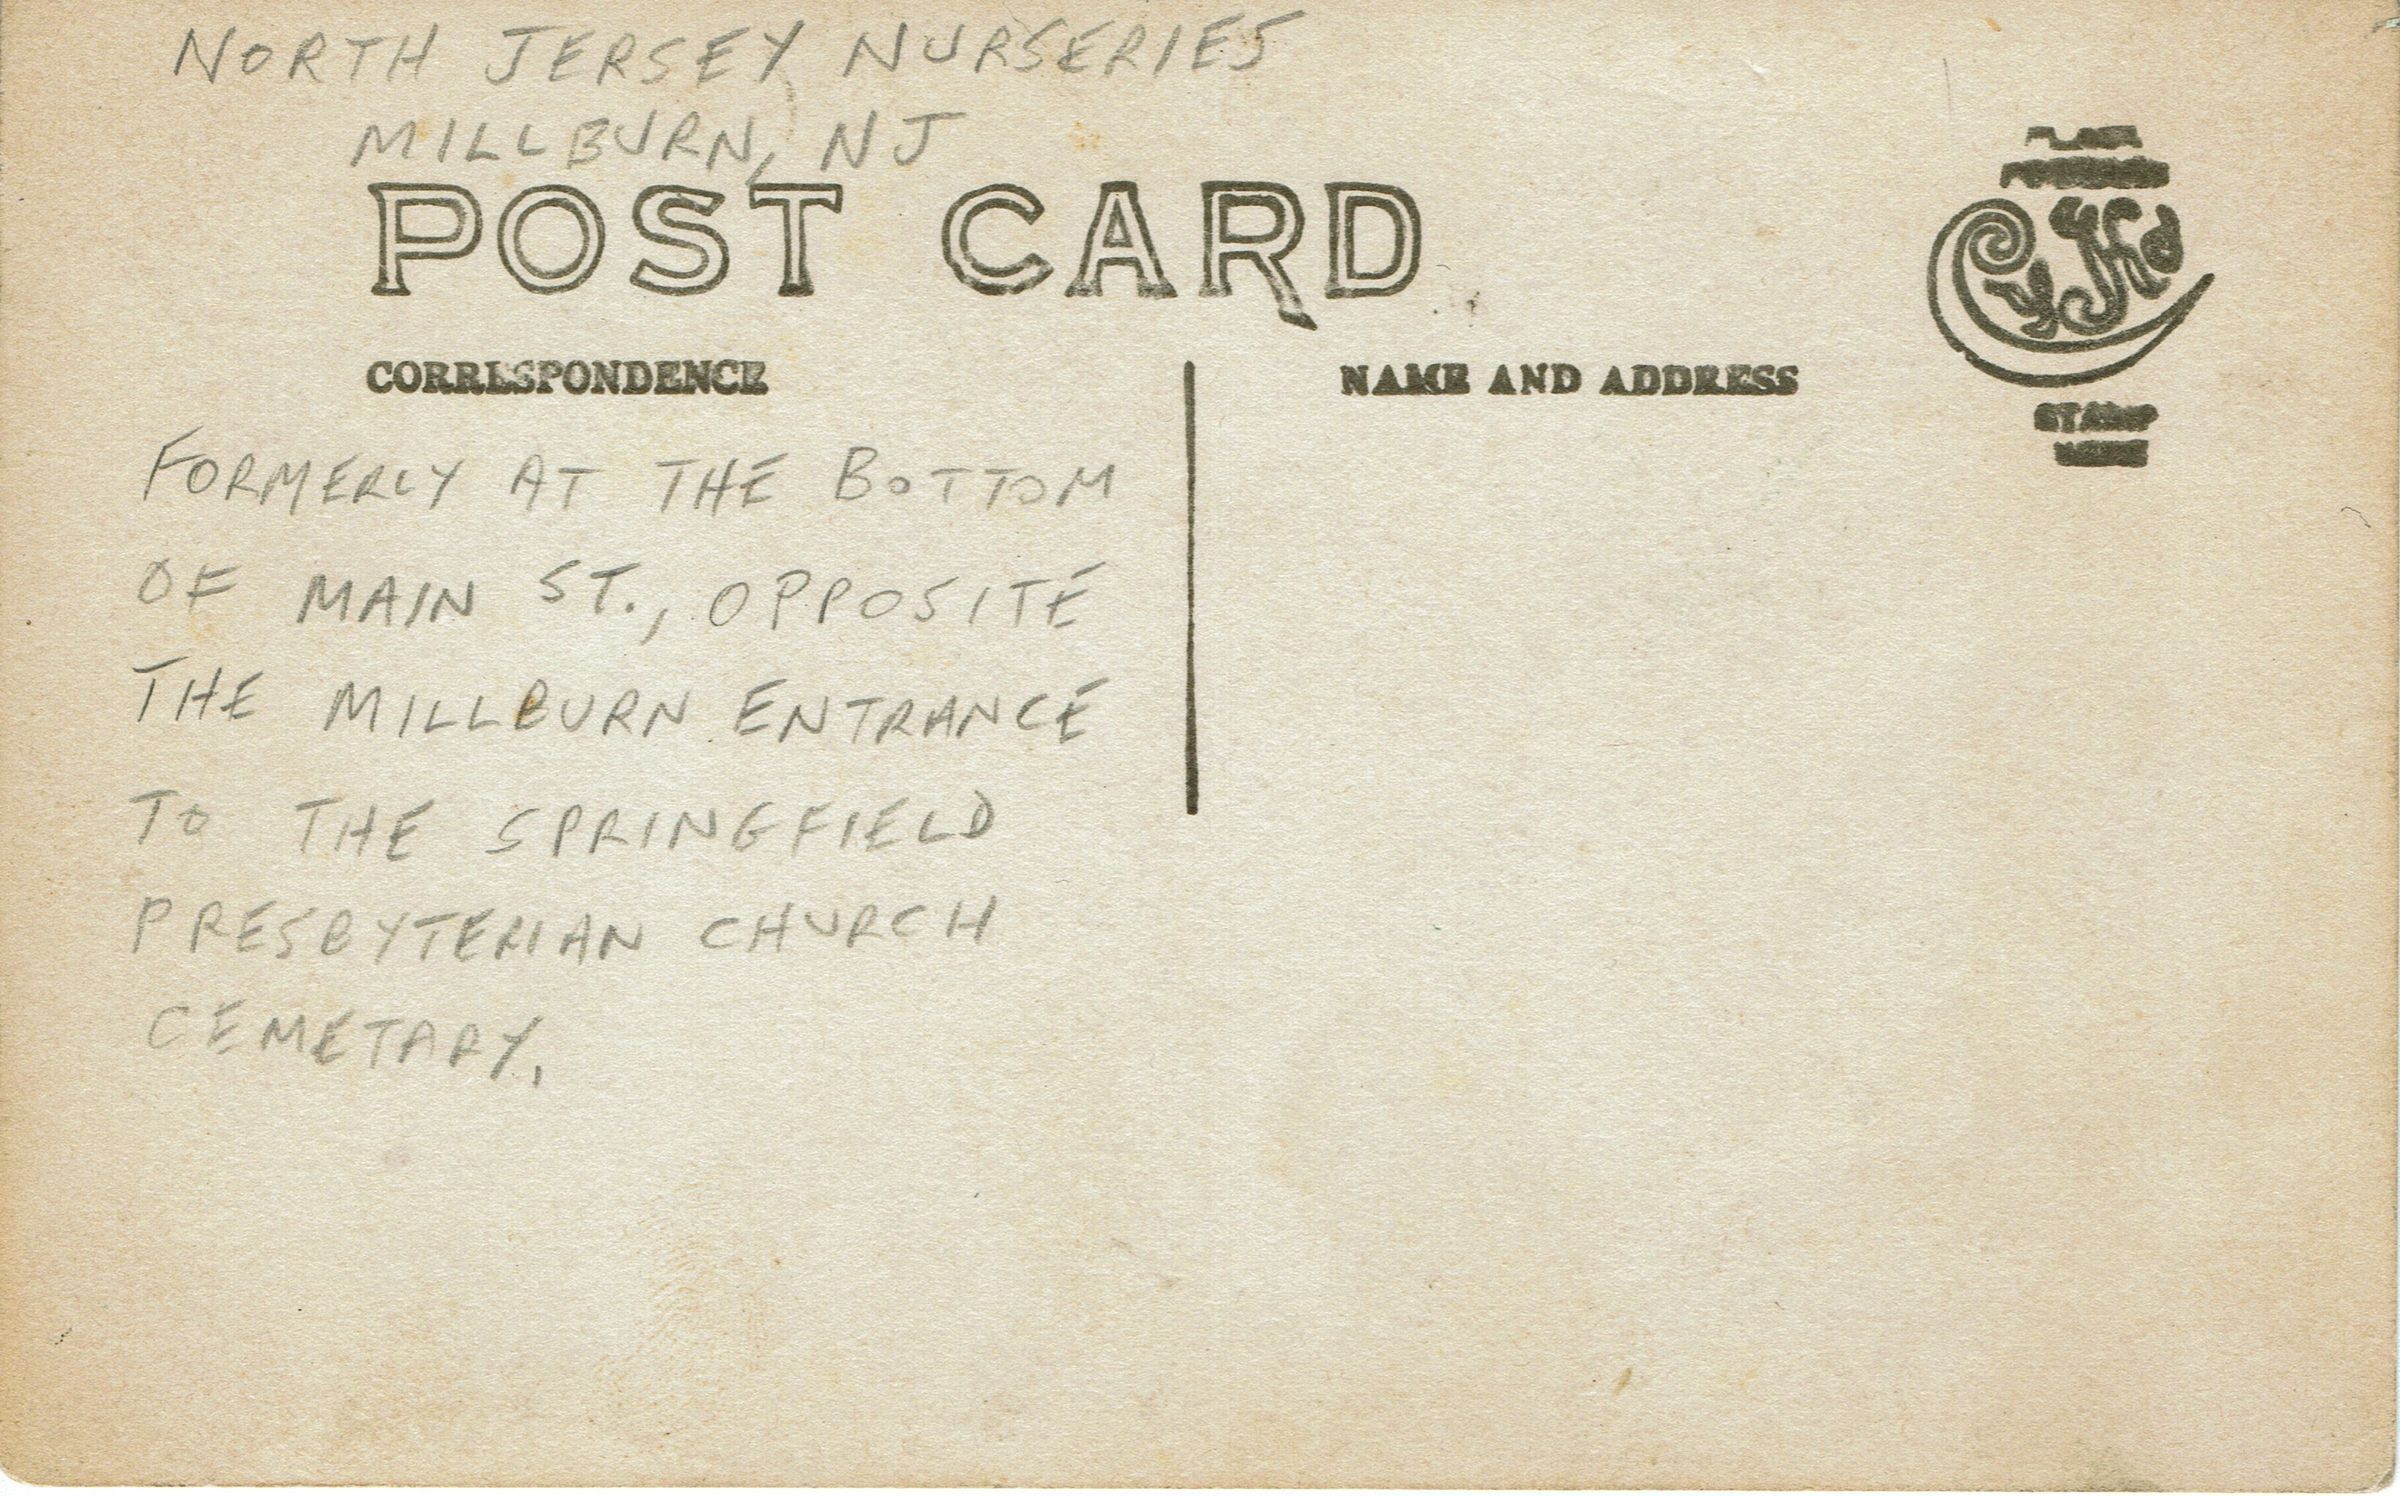 NORTH JERSEY NURSERIES
MILLBURN, NJ
POST CARD
CORRESPONDENCE
NAME AND ADDRESS
STAMP
FORMERLY AT THE BOTTOM
OF MAIN ST., OPPOSITE
THE MILLBURN ENTRANCE
TO THE SPRINGFIELD
PRESBYTERIAN CHURCH
CEMETARY.